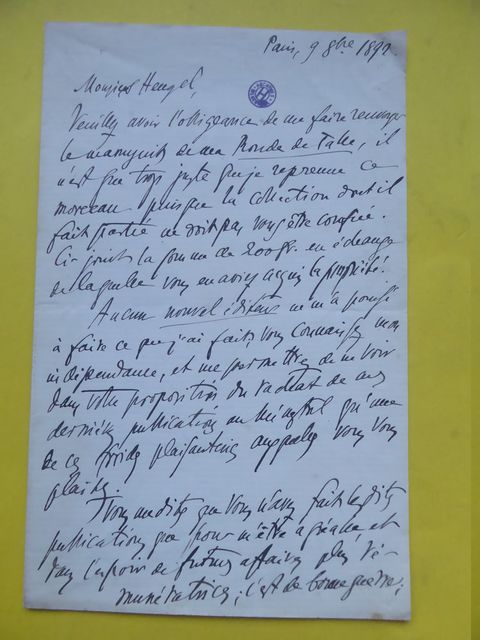 Paris, 9 8bre 1892
Monsieur Heugel,
Veuillez avoir l'obligeance de me faire renvoyer
le manuscrit de ma Ronde de Table, il
n'est que trop juste que je reprenne ce
morceau puisque la collection dont il
fait partie ne doit pas vous être confiée.
Ci-joint la somme de 200 fr. en échange
de laquelle vous en aviez acquis la propriété.
Aucun nouvel éditeur ne m'a poussé
à faire ce que j'ai fait, vous connaissez mon
indépendance, et me permettrez de ne voir
dans votre proposition du rachat de mes
dernières publications au Ménestrel qu'une
de ces plaisanteries auxquelles vous vous
plaisez.
Vous me dites que vous n'avez fait lesdites
publications que pour m'être agréable et
dans l'espoir de futures affaires plus ré-
munératrices; c'est de bonne guerre;